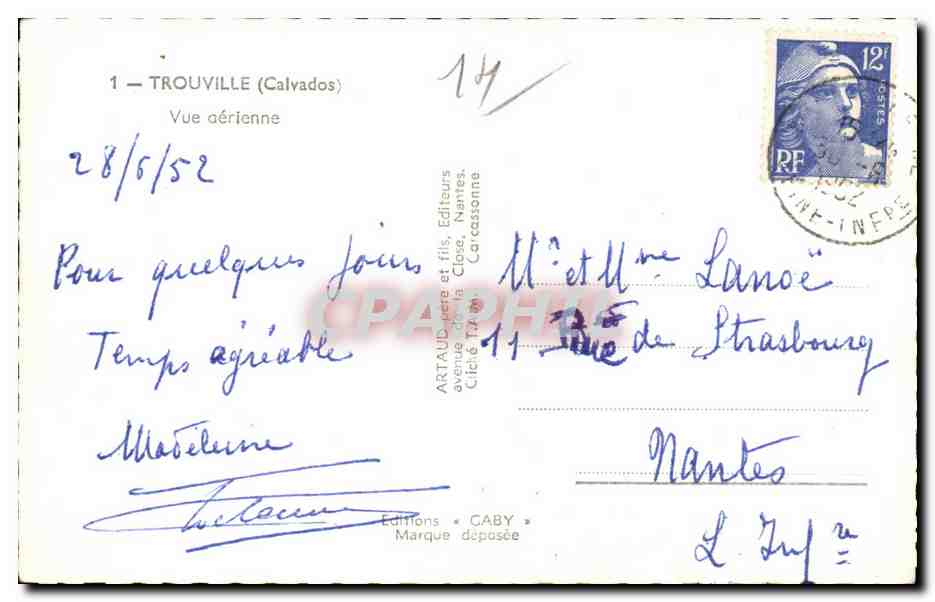 1 — TROUVILLE (Calvados)
Vue aérienne
28/6/52
Pour quelques jours
Temps agréable
Madeleine
14
12F
POSTES
RF
1952
ARTAUD père et fils, Editeurs
avenue de la Close, Nantes.
Cliché T.A.M. Carcassonne
CPAPHIL
Mr et Mme Lanoë
11 Rue de Strasbourg
Nantes
L. Infre
Editions « GABY »
Marque déposée